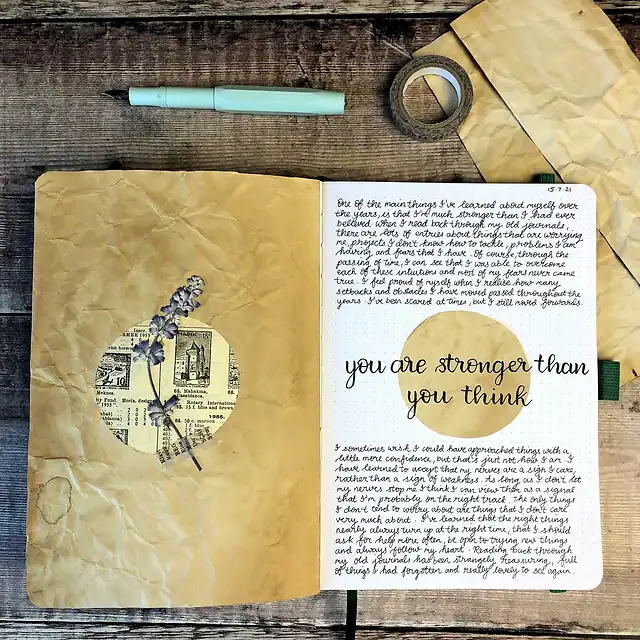 RMEE 1953
1953
10
Meknes.
Mahakma,
Casablanca.
Rotary Internationa
15 f. blue and brown
1955.
50 c. maroon
1 f. blue
15-7-21
One of the main things I've learned about myself over
the years, is that I'm much stronger than I had ever
believed. When I read back through my old journals,
there are lots of entries about things that are worrying
me, projects I don't know how to tackle, problems I am
having and fears that I have. Of course, through the
passing of time, I can see that I was able to overcome
each of these intuitions and most of my fears never came
true. I feel proud of myself when I realise how many
setbacks and obstacles I have moved passed throughout the
years. I've been scared at times, but I still moved forwards.
you are stronger than
you think
I sometimes wish I could have approached things with a
little more confidence, but that's just not how I am. I
have learned to accept that my nerves are a sign I care,
rather than a sign of weakness. As long as I don't let
my nerves stop me I think I can view them as a signal
that I'm probably on the right track. The only things
I don't tend to worry about are things that I don't care
very much about. I've learned that the right things
nearly always turn up at the right time, that I should
ask for help more often, be open to trying new things
and always follow my heart. Reading back through
my old journals has been strangely reassuring, full
of things I had forgotten and really lovely to see again.